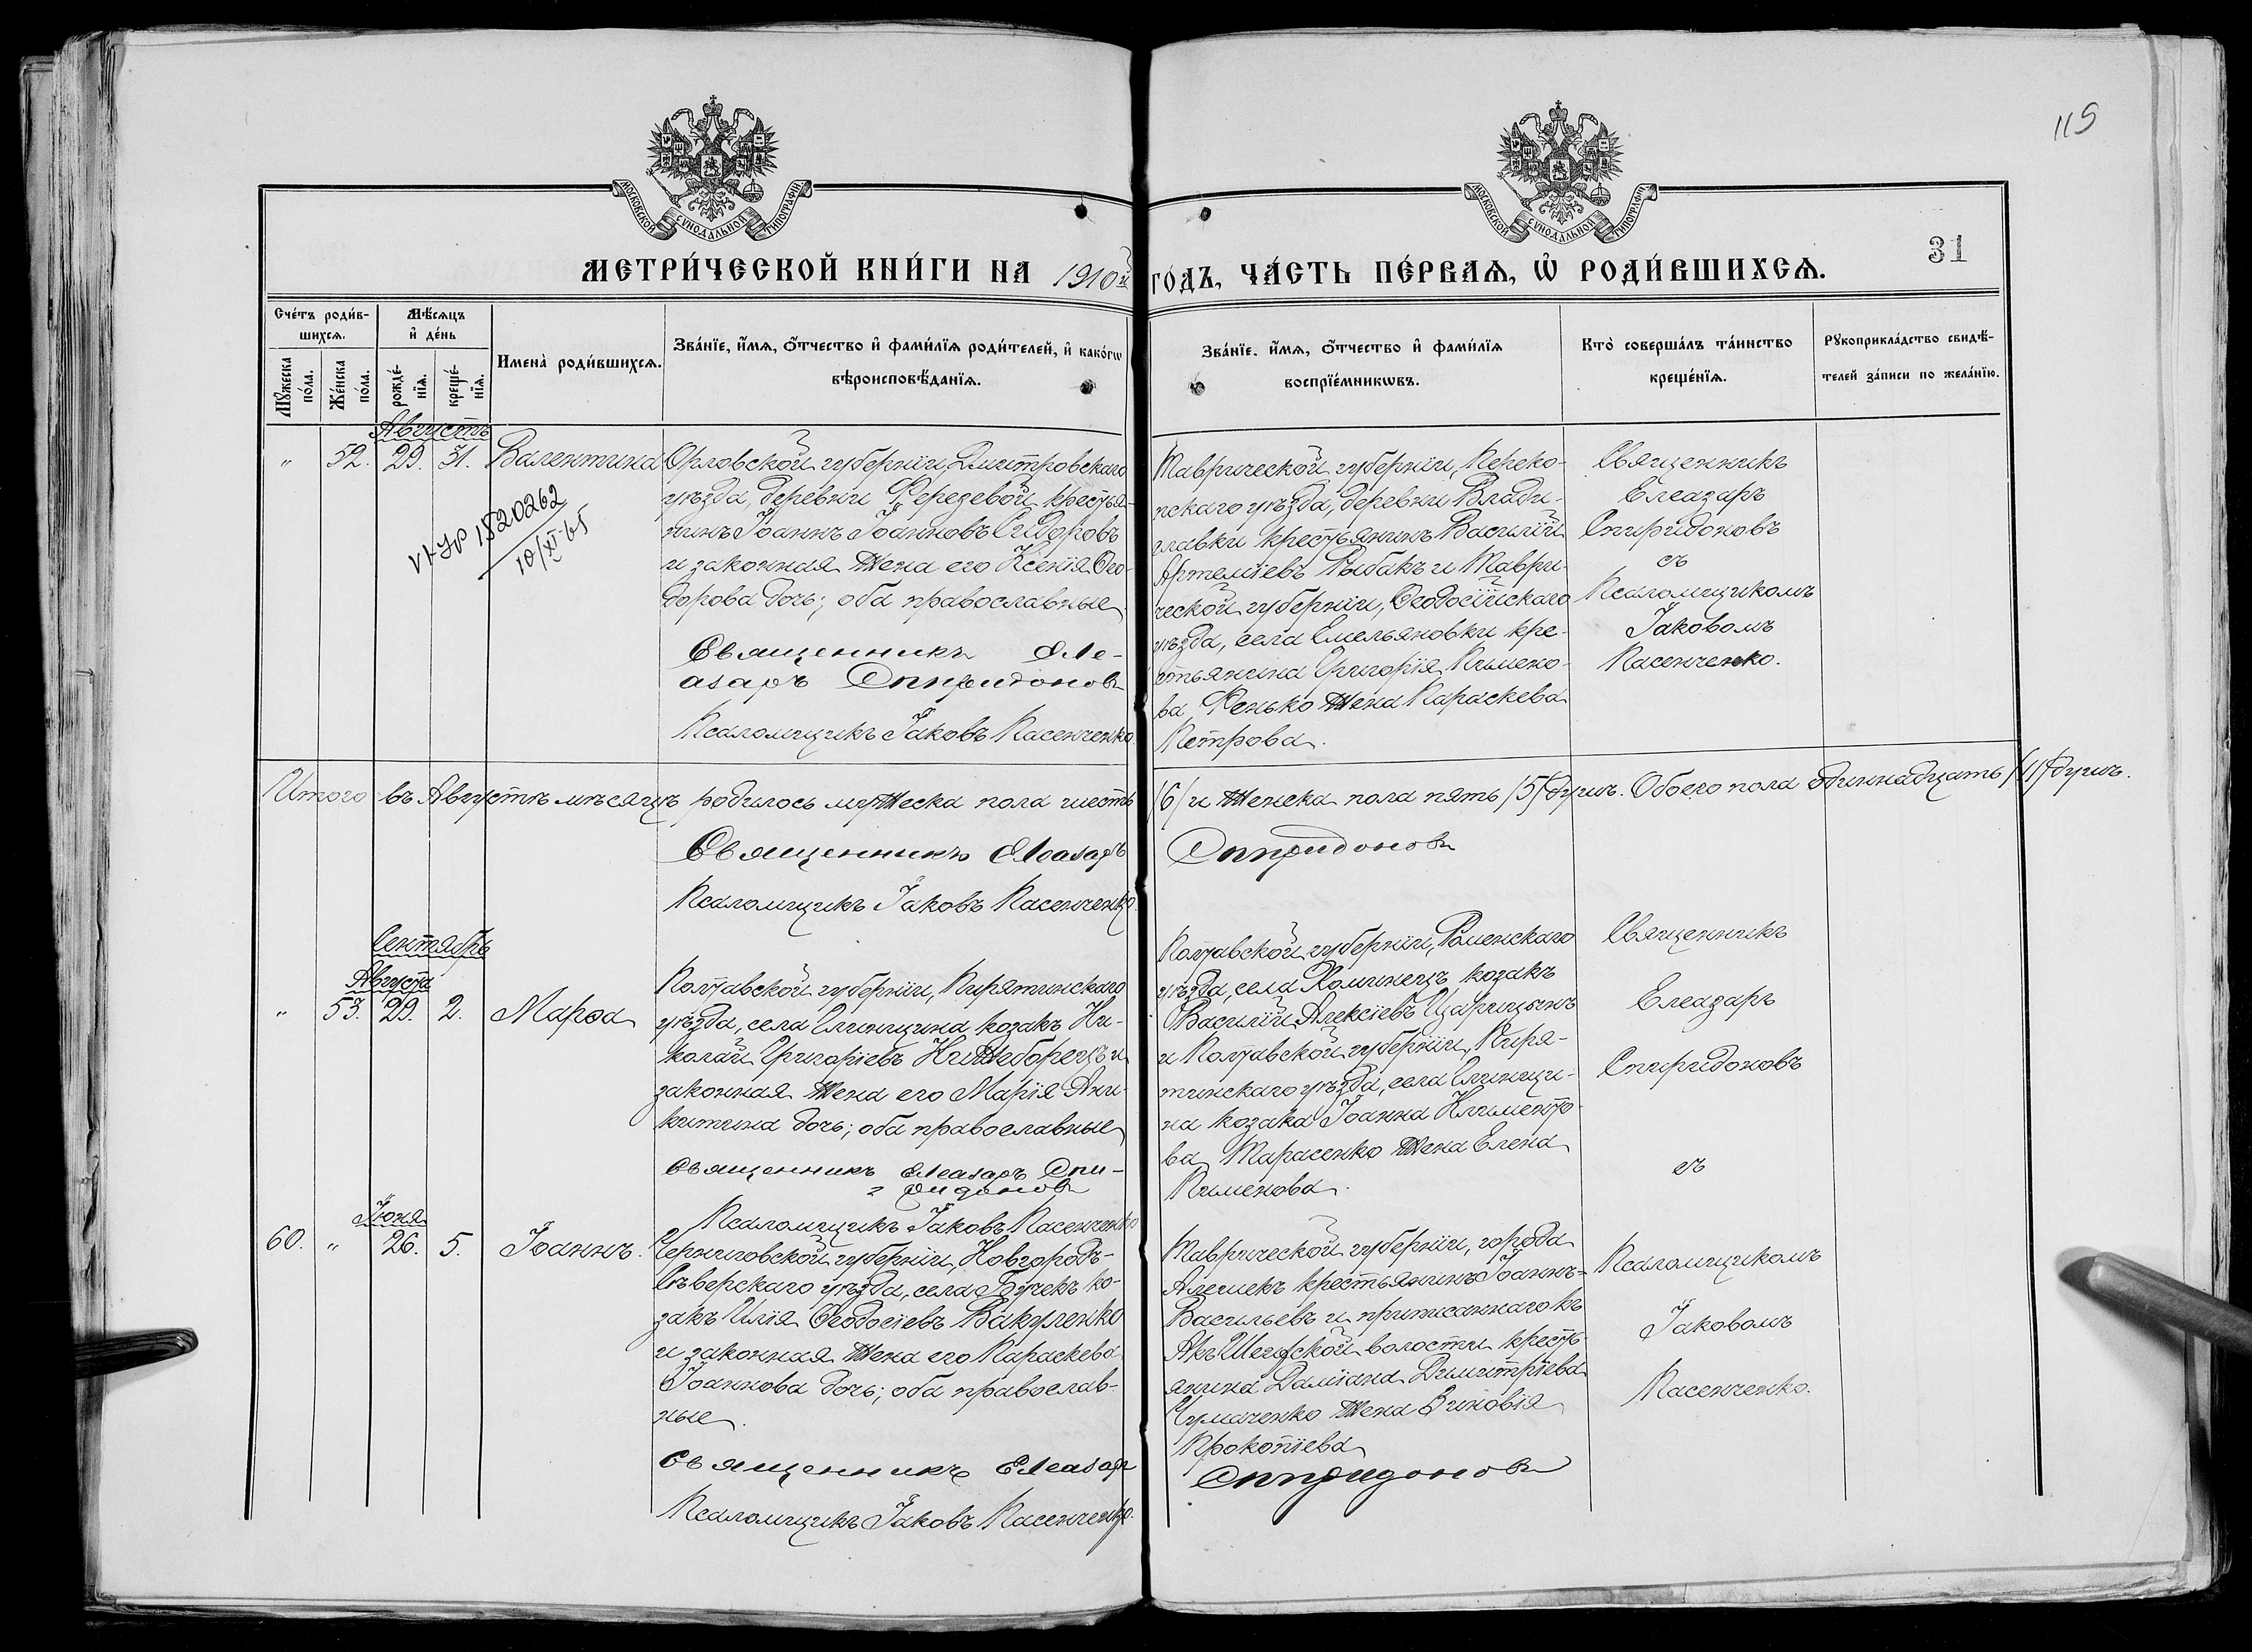 115
МОСКОВСКОЙ СѴНОДАЛЬНОЙ ТИПОГРАФІИ
МОСКОВСКОЙ СѴНОДАЛЬНОЙ ТИПОГРАФІИ
31
МЕТРИ́ЧЕСКОЙ КНИ́ГИ НА 1910й ГО́ДЪ, ЧА́СТЬ ПЕ́РВАѦ, Ѡ҆ РОДИ́ВШИХСѦ.
Сче́тъ роди́в-
шихсѧ.
Мꙋжеска по́ла.
Же́нска по́ла.
Мѣ́сѧцъ
и҆ де́нь
рожде́-
нїѧ.
креще́-
нїѧ.
Имена̀ роди́вшихсѧ.
Зва́нїе, и҆́мѧ, ѻ҆́тчество и҆ фами́лїѧ роди́телей, и҆ како́гѡ
вѣроисповѣ́данїѧ.
Зва́нїе, и҆́мѧ, ѻ҆́тчество и҆ фами́лїѧ
воспрїе́мникѡвъ.
Кто̀ соверша́лъ та́инство
креще́нїѧ.
Рꙋкоприкла́дство свидѣ́-
телей за́писи по жела́нїю.
Августъ
" 52. 29. 31. Валентина
1520262
10/XI-65
Орловской губерніи, Дмитровскаго
уѣзда, деревни Ферезевой крестья-
нинъ Іоаннъ Іоанновъ Сидоровъ
и законная жена его Ксенія Ѳео-
дорова дочь; оба православные
Священникъ Еле-
азаръ Спиридоновъ
Псаломщикъ Іаковъ Пасенченко.
Таврической губерніи, Переко-
пскаго уѣзда, деревни Влади-
славки крестьянинъ Василій
Артеміевъ Рыбакъ и Таври-
ческой губерніи, Ѳеодосійскаго
уѣзда, села Емельяновки кре-
стьянина Григорія Пимено-
ва Фенько жена Параскева
Петрова.
Священникъ
Елеазаръ
Спиридоновъ
съ
Псаломщикомъ
Іаковомъ
Пасенченко.
Итого въ Августѣ мѣсяцѣ родилось мужеска пола шесть /6/ и женска пола пять /5/ душъ. Обоего пола одиннадцать /11/ душъ.
Священникъ Елеазаръ Спиридоновъ
Псаломщикъ Іаковъ Пасенченко.
Сентябрь
Августа
" 53. 29. 2. Марѳа
Полтавской губерніи, Пирятинскаго
уѣзда, села козакъ Ни-
колай Григоріевъ Нижеборецъ и
законная жена его Марія Ани-
китина дочь; оба православные
Священникъ Елеазаръ Спи-
ридоновъ
Псаломщикъ Іаковъ Пасенченко
Полтавской губерніи, Роменскаго
уѣзда, села Хоминецъ козакъ
Василій Алексіевъ Царицынъ
и Полтавской губерніи, Пиря-
тинскаго уѣзда, села
козака Іоанна Клименто-
ва Тарасенко жена Елена
Пименова.
Священникъ
Елеазаръ
Спиридоновъ
съ
Псаломщикомъ
Іаковомъ
Пасенченко.
Іюня
60. " 26. 5. Іоаннъ.
Черниговской губерніи, Новгородъ-
Сѣверскаго уѣзда, села Бучекъ ко-
закъ Илія Ѳеодосіевъ Вакуленко
и законная жена его Параскева
Іоаннова дочь; оба православ-
ные.
Таврической губерніи, города
Алешекъ крестьянинъ Іоаннъ
Васильевъ и приписаннаго къ
Акъ-Шеихской волости кресть-
янина Даміана Димитріева
Чумаченко жена Зиновія
Прокопіева
Священникъ Елеазаръ Спиридоновъ
Псаломщикъ Іаковъ Пасенченко.